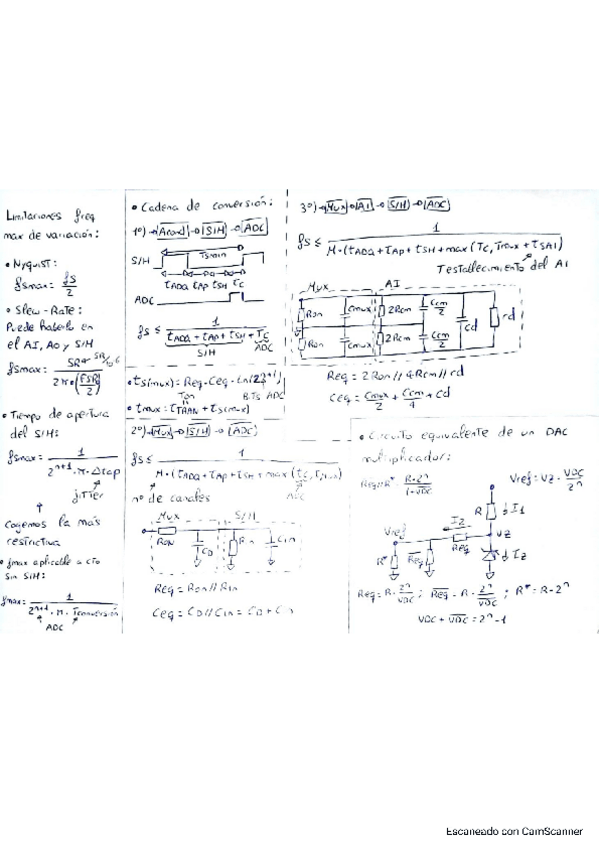 Limitaciones freq
max de variación:
• Nyquist:
fsmax = fs/2
• Slew-Rate:
Puede haberlo en
el AI, AO y S/H
fsmax =
• Tiempo de apertura
del S/H:
fsmax = 1/(2^(n+1)·π·Δtap)
jitter
Cogemos la más
restrictiva
• fmax aplicable a cto
sin S/H:
fmax = 1/(2^(n+1)·π·Tconversión)
ADC
• Cadena de conversión:
1º) → Acond → S/H → ADC
Tsmin
S/H
tADQ tAp tSH tC
ADC
fs ≤ 1/(tADQ + tAp + tSH + TC)
S/H ADC
• ts(mux) = Req·Ceq·ln(2^(n+1))
Ton Bits ADC
• tmux = tTRAN + ts(mux)
2º) → Mux → S/H → ADC
fs ≤ 1/(M·(tADQ + tAp + tSH + max(tC, tmux)))
nº de canales ADC
Mux S/H
Ron CD Rin Cin
Req = Ron // Rin
Ceq = CD // Cin = CD + Cin
3º) → Mux → AI → S/H → ADC
fs ≤ 1/(M·(tADQ + tAp + tSH + max(TC, Tmux + tSAI)))
Testablecimiento del AI
Mux AI
Ron Cmux 2Rcm Ccm/2 cd rd
Ron Cmux 2Rcm Ccm/2
Req = 2Ron // 4Rcm // rd
Ceq = Cmux/2 + Ccm/4 + cd
• Circuito equivalente de un DAC
multiplicador:
Req//R* R·2^n
Vref = Vz · VDC/2^n
R I1
Vref I2 Vz
R* Req Req Iz
Req = R·2^n/VDC ; Req = R·2^n/VDC ; R* = R·2^n
VDC + VDC = 2^n - 1
Escaneado con CamScanner